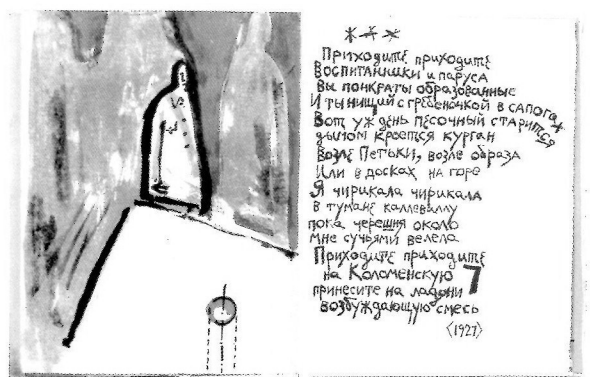 * * *
Приходите приходите
Воспитанники и паруса
Вы понкраты образованные
И ты нищий с гребёночкой в сапогах
Вот уж день песочный старится
дымом кроется курган
Возле Петьки, возле образа
Или в досках на горе
Я чирикала чирикала
в тумане каллеваллу
пока черешня около
мне сучьями велела
Приходите приходите
на Коломенскую 7
принесите на ладони
возбуждающую смесь
<1927>